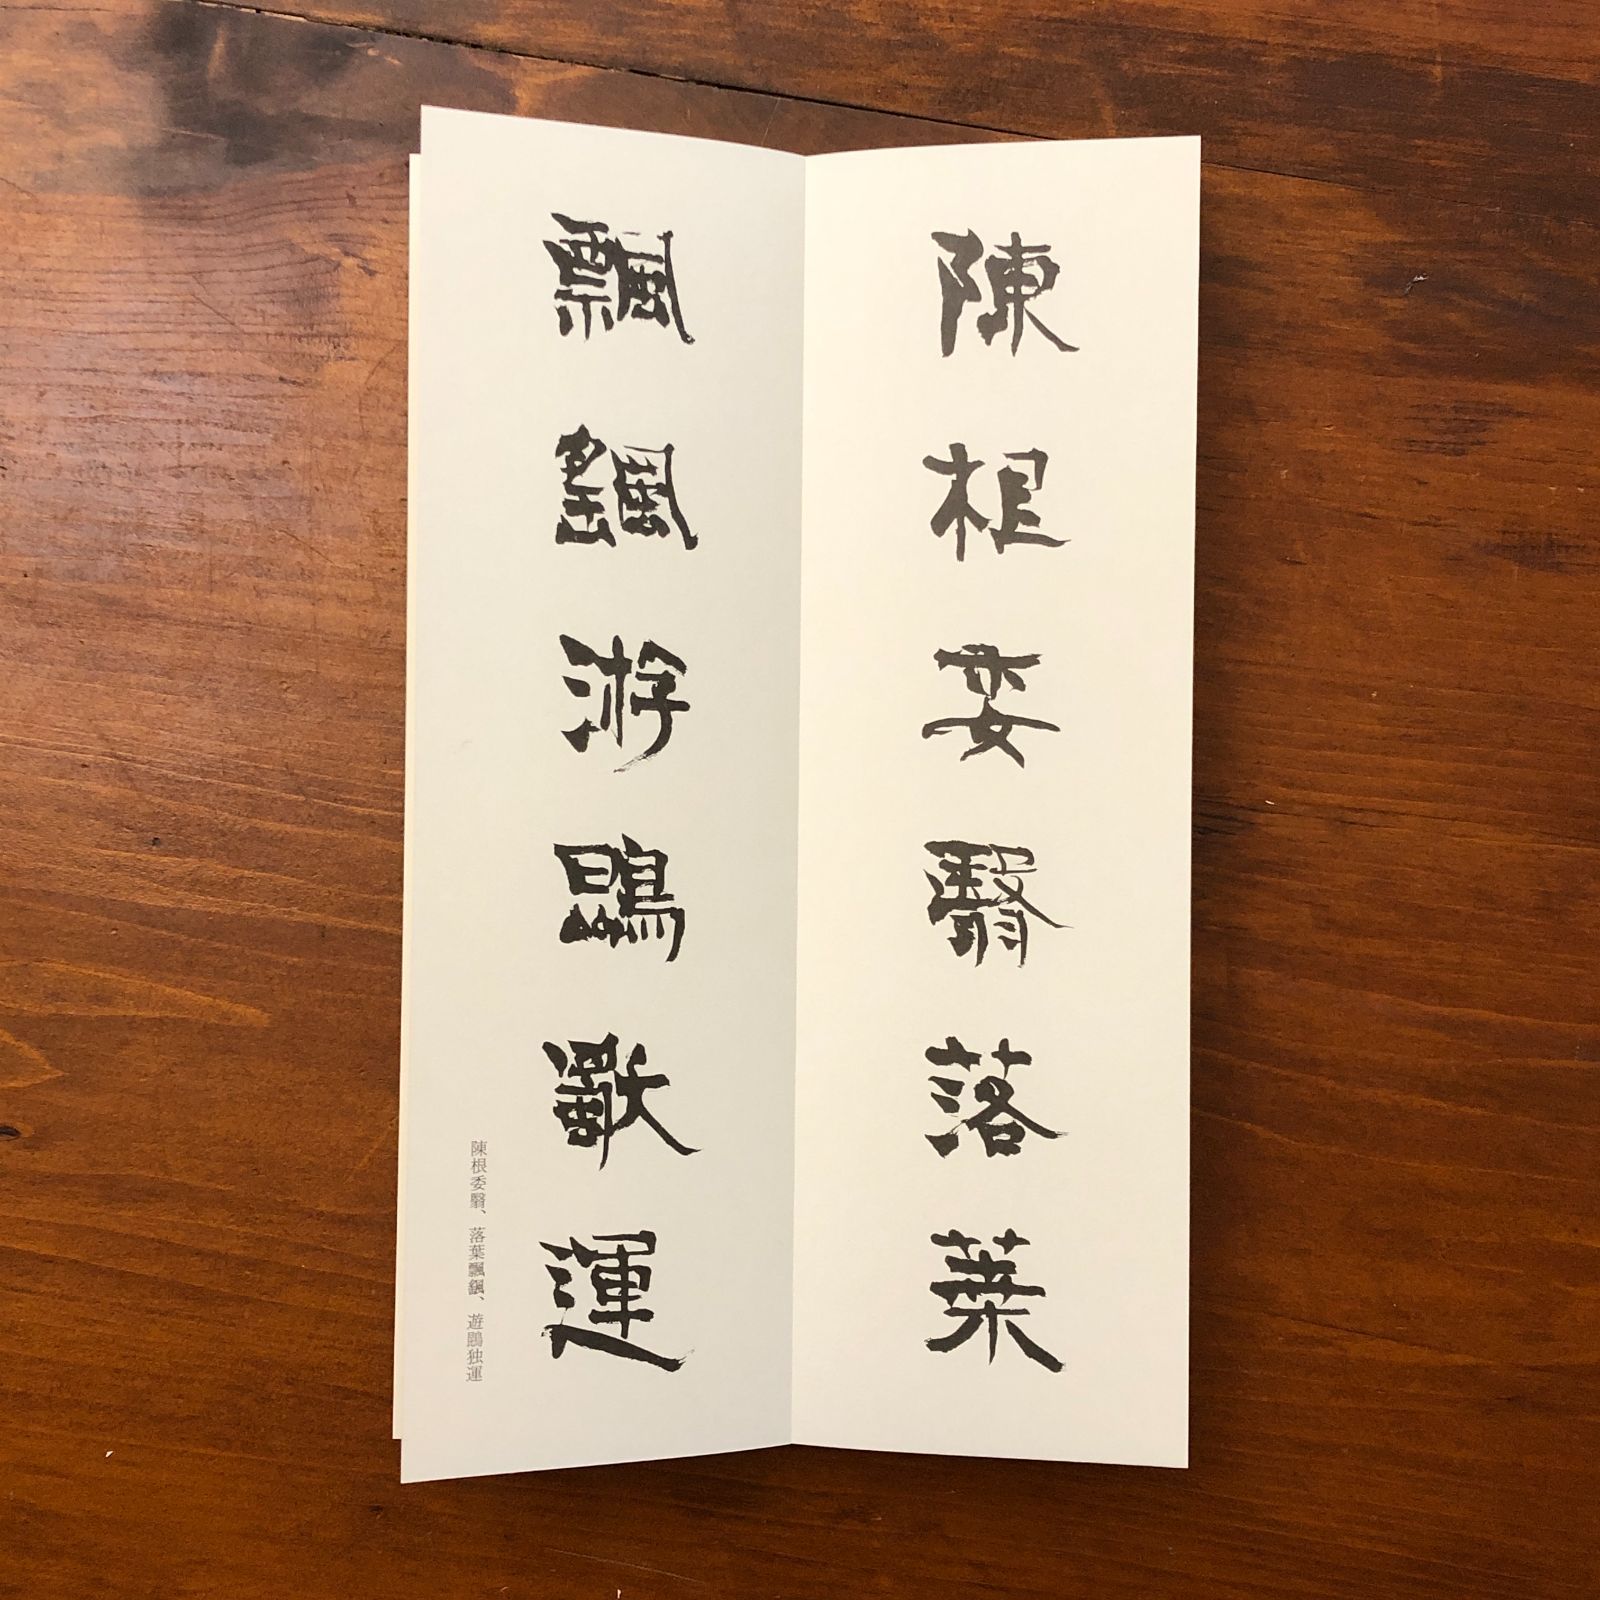 陳根委翳落葉
飄颻游鵾獨運
陳根委翳、落葉飄颻、遊鵾独運